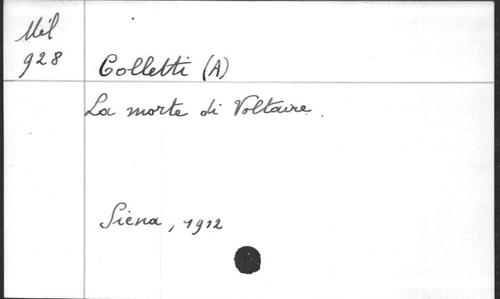 Mél
928
Colletti (A)
La morte di Voltaire.
Siena, 1912